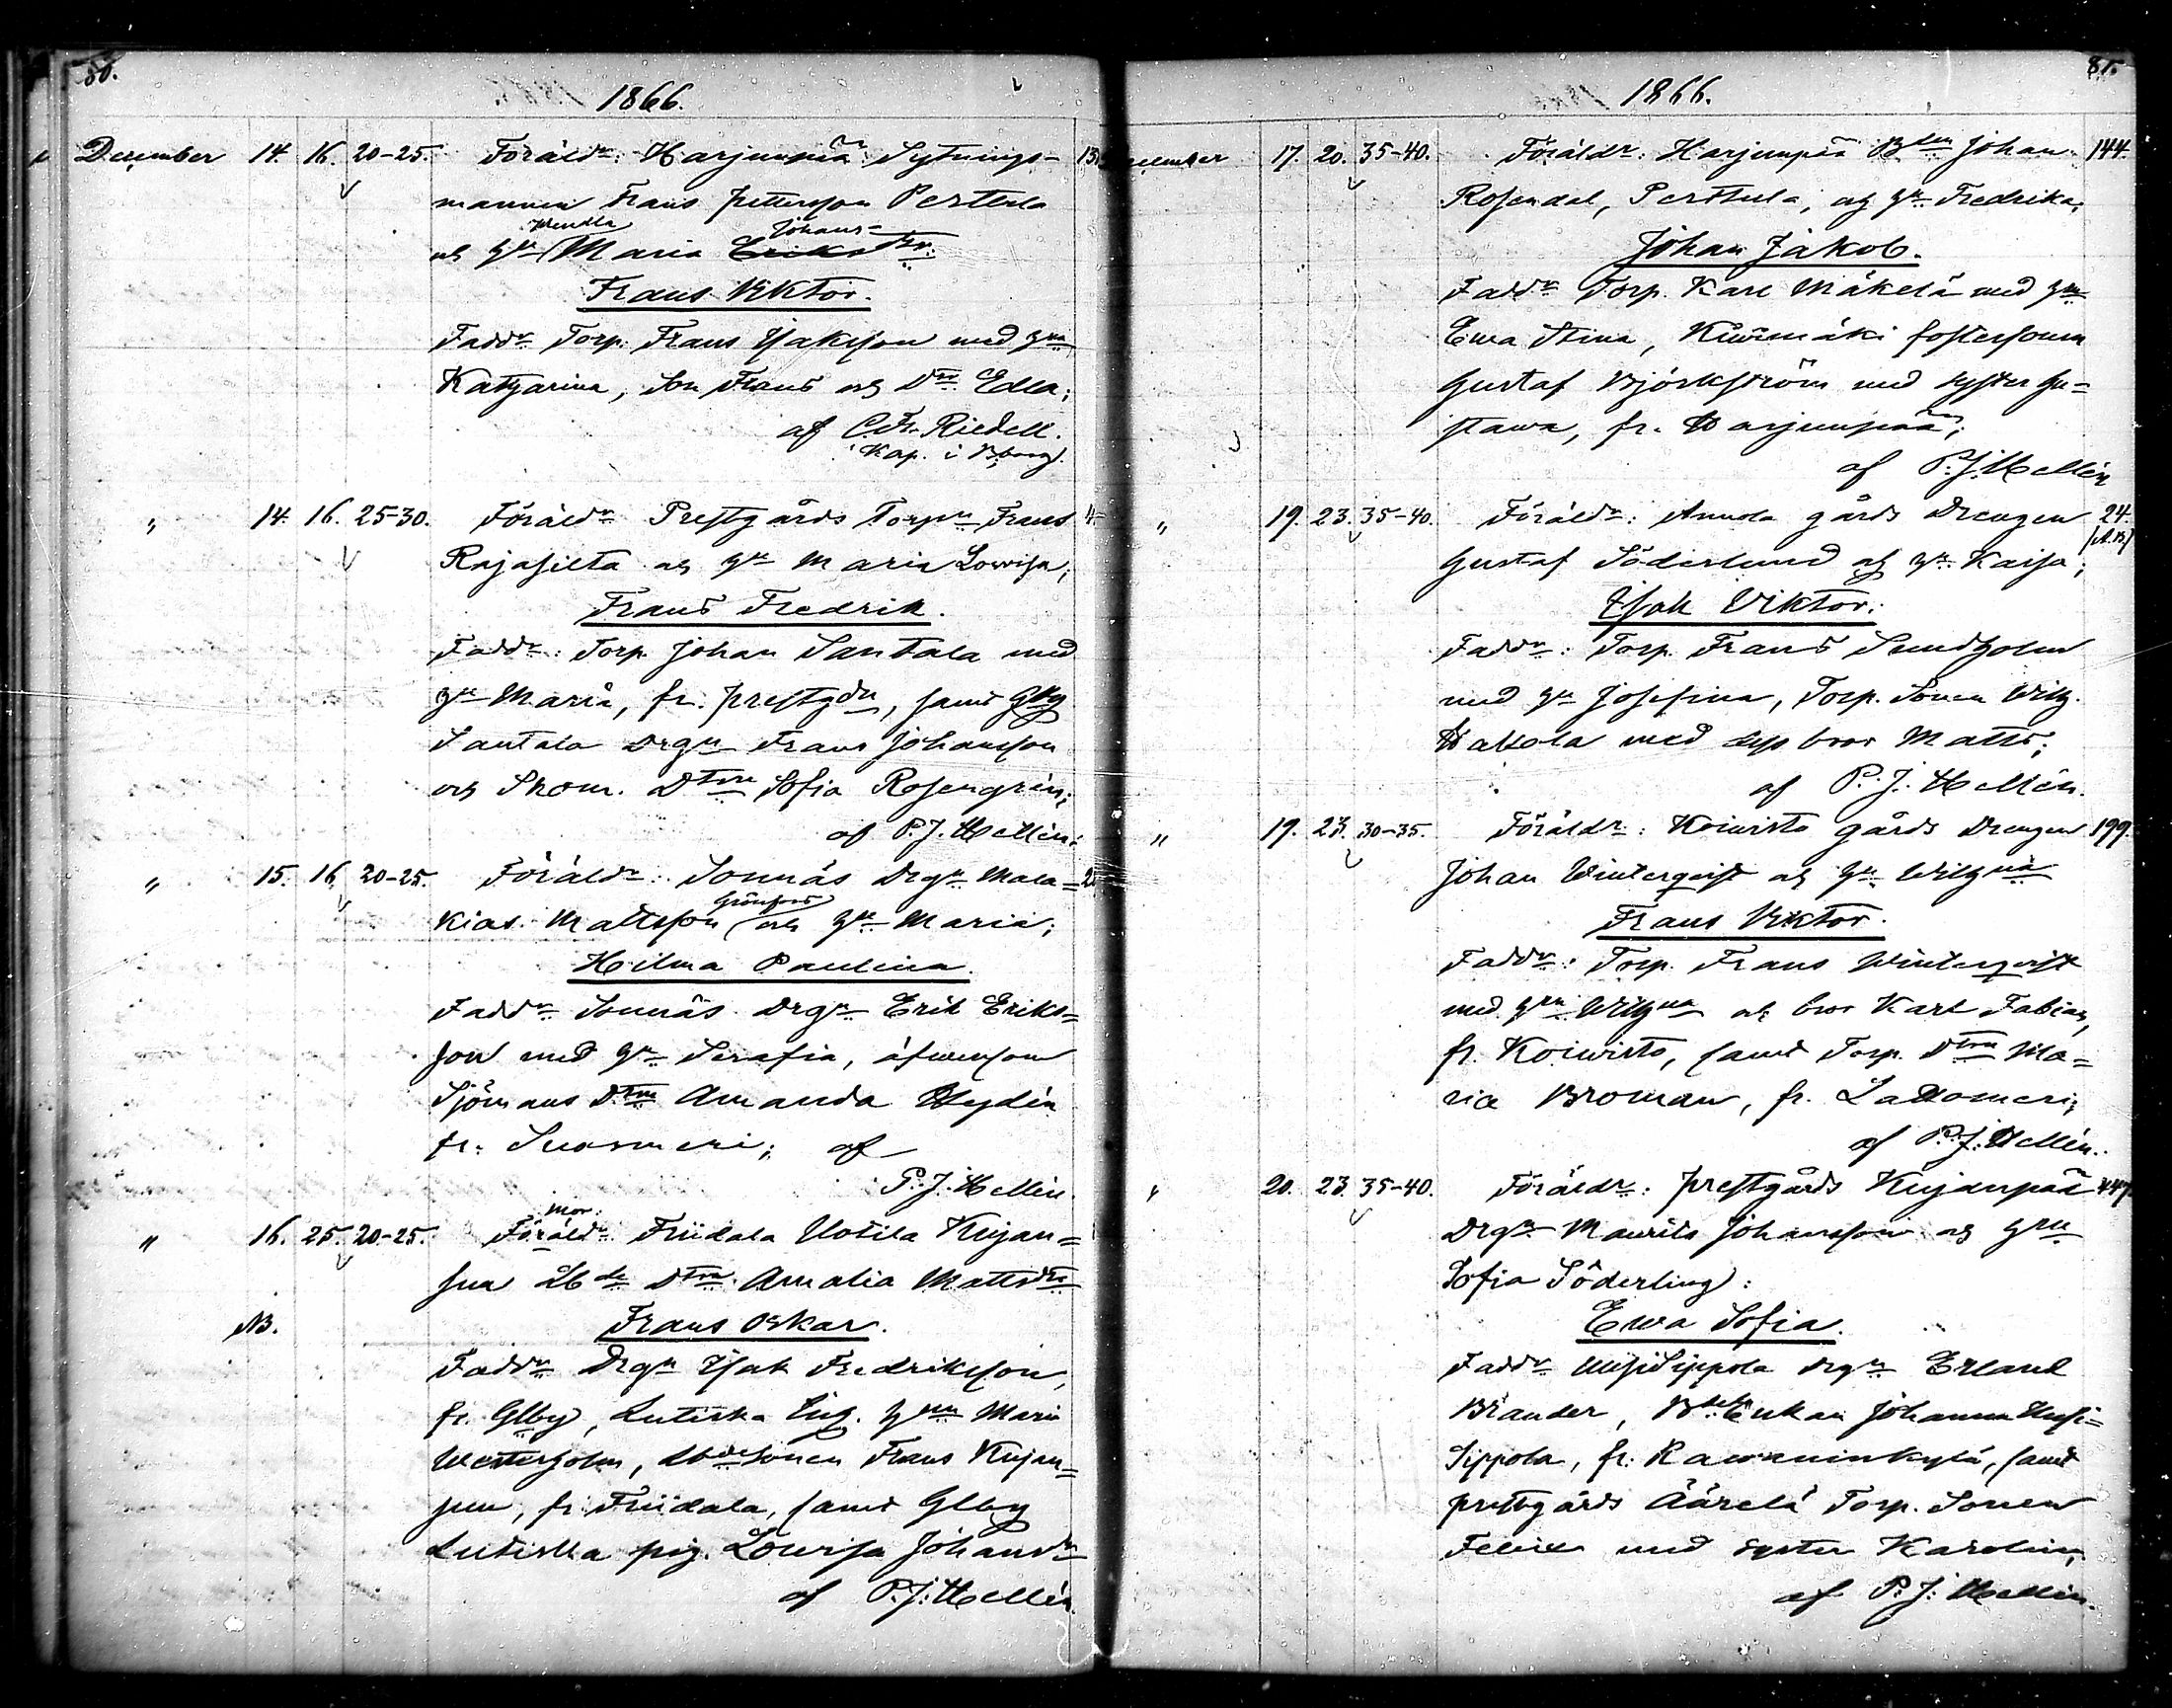 80.
1866.
December 14. 16. 20-25. Föräldr: Harjunpää Sytnings-
mannen Frans Pettersson Perttula
Wendla Johans-
och Hu Maria Eriksdr.
Frans Viktor.
Faddr Torp. Frans Isaksson med Hu
Katharina, Son Frans och Dtr. Edla;
af C. Fr. Riedell.
Kap. i Bborg.
" 14. 16. 25-30. Föräldr Prestgårds Torpn Frans
Rajasilta och Hu Maria Lovisa;
Frans Fredrik.
Faddr: Torp. Johan Santala med
Hu Maria, fr. prestgdn, samt Glby
Santala Drgn Frans Johansson
och Skom. Dtrn Sofia Rosengrén;
af P. J. Hellén.
" 15. 16. 20-25. Föräldr: Sonnäs Drgn Mala=
Grönfors
kias Mattsson och Hu Maria;
Hilma Paulina.
Faddr Sonnäs Drgn Erik Eriks=
son med Hu Serafia, äfvensom
Sjömans Dtrn Amanda Hydén
fr. Suosmeri; af
P. J. Hellén.
mor:
" 16. 25. 20-25. Föräldr Friidala Uotila Kujan=
suu Åbde Dtrn Amalia Mattsdtr
NB. Frans Oskar.
Faddr Drgn Isak Fredriksson,
fr. Glby, Lutiska Hun Maria
Westerholm, Åbdesonen Frans Kujan=
suu, fr. Friidala, samt Glby
Lutiska pig. Lovisa Johansdr
af P. J. Hellén.
81.
1866.
December 17. 20. 35-40. Föräldr: Harjunpää Bdn Johan 144.
Rosendal, Perttula, och Hu Fredrika;
Johan Jakob.
Faddr Torp. Karl Mäkelä med Hu
Ewa Stina, Kiwimäki fostersonen
Gustaf Björkström med syster Gu=
stawa, fr. Harjunpää;
af P. J. Hellén
" 19. 23. 35-40. Föräldr: Annola gårds Drengen 24.
Gustaf Söderlund och Hu Kaisa;
Isak Viktor.
Faddr: Torp. Frans Sundholm
med Hu Josefina, Torp. Sonen Wilh.
Hakola med dess bror Matts;
af P. J. Hellén.
" 19. 23. 30-35. Föräldr: Koiwisto gårds Drengen 199.
Johan Winterqvist och Hu Wilhna
Frans Viktor.
Faddr: Torp. Frans Winterqvist
med Hun Wilhna och bror Karl Fabian,
fr. Koiwisto, samt Torp. Dtrn Ma=
ria Broman, fr. Lattomeri;
af P. J. Hellén.
" 20. 23. 35-40. Föräldr: prestgårds Kujanpää 447.
Drgn Maurits Johansson och Hun
Sofia Söderling:
Ewa Sofia.
Faddr UusiSippola drgn Erland
Brander, Enkan Johanna Uusi=
Sippola, fr. Rawaninkylä, samt
prestgårds Äärelä Torp. Sonen
Felix med syster Karolina;
af P. J. Hellén.